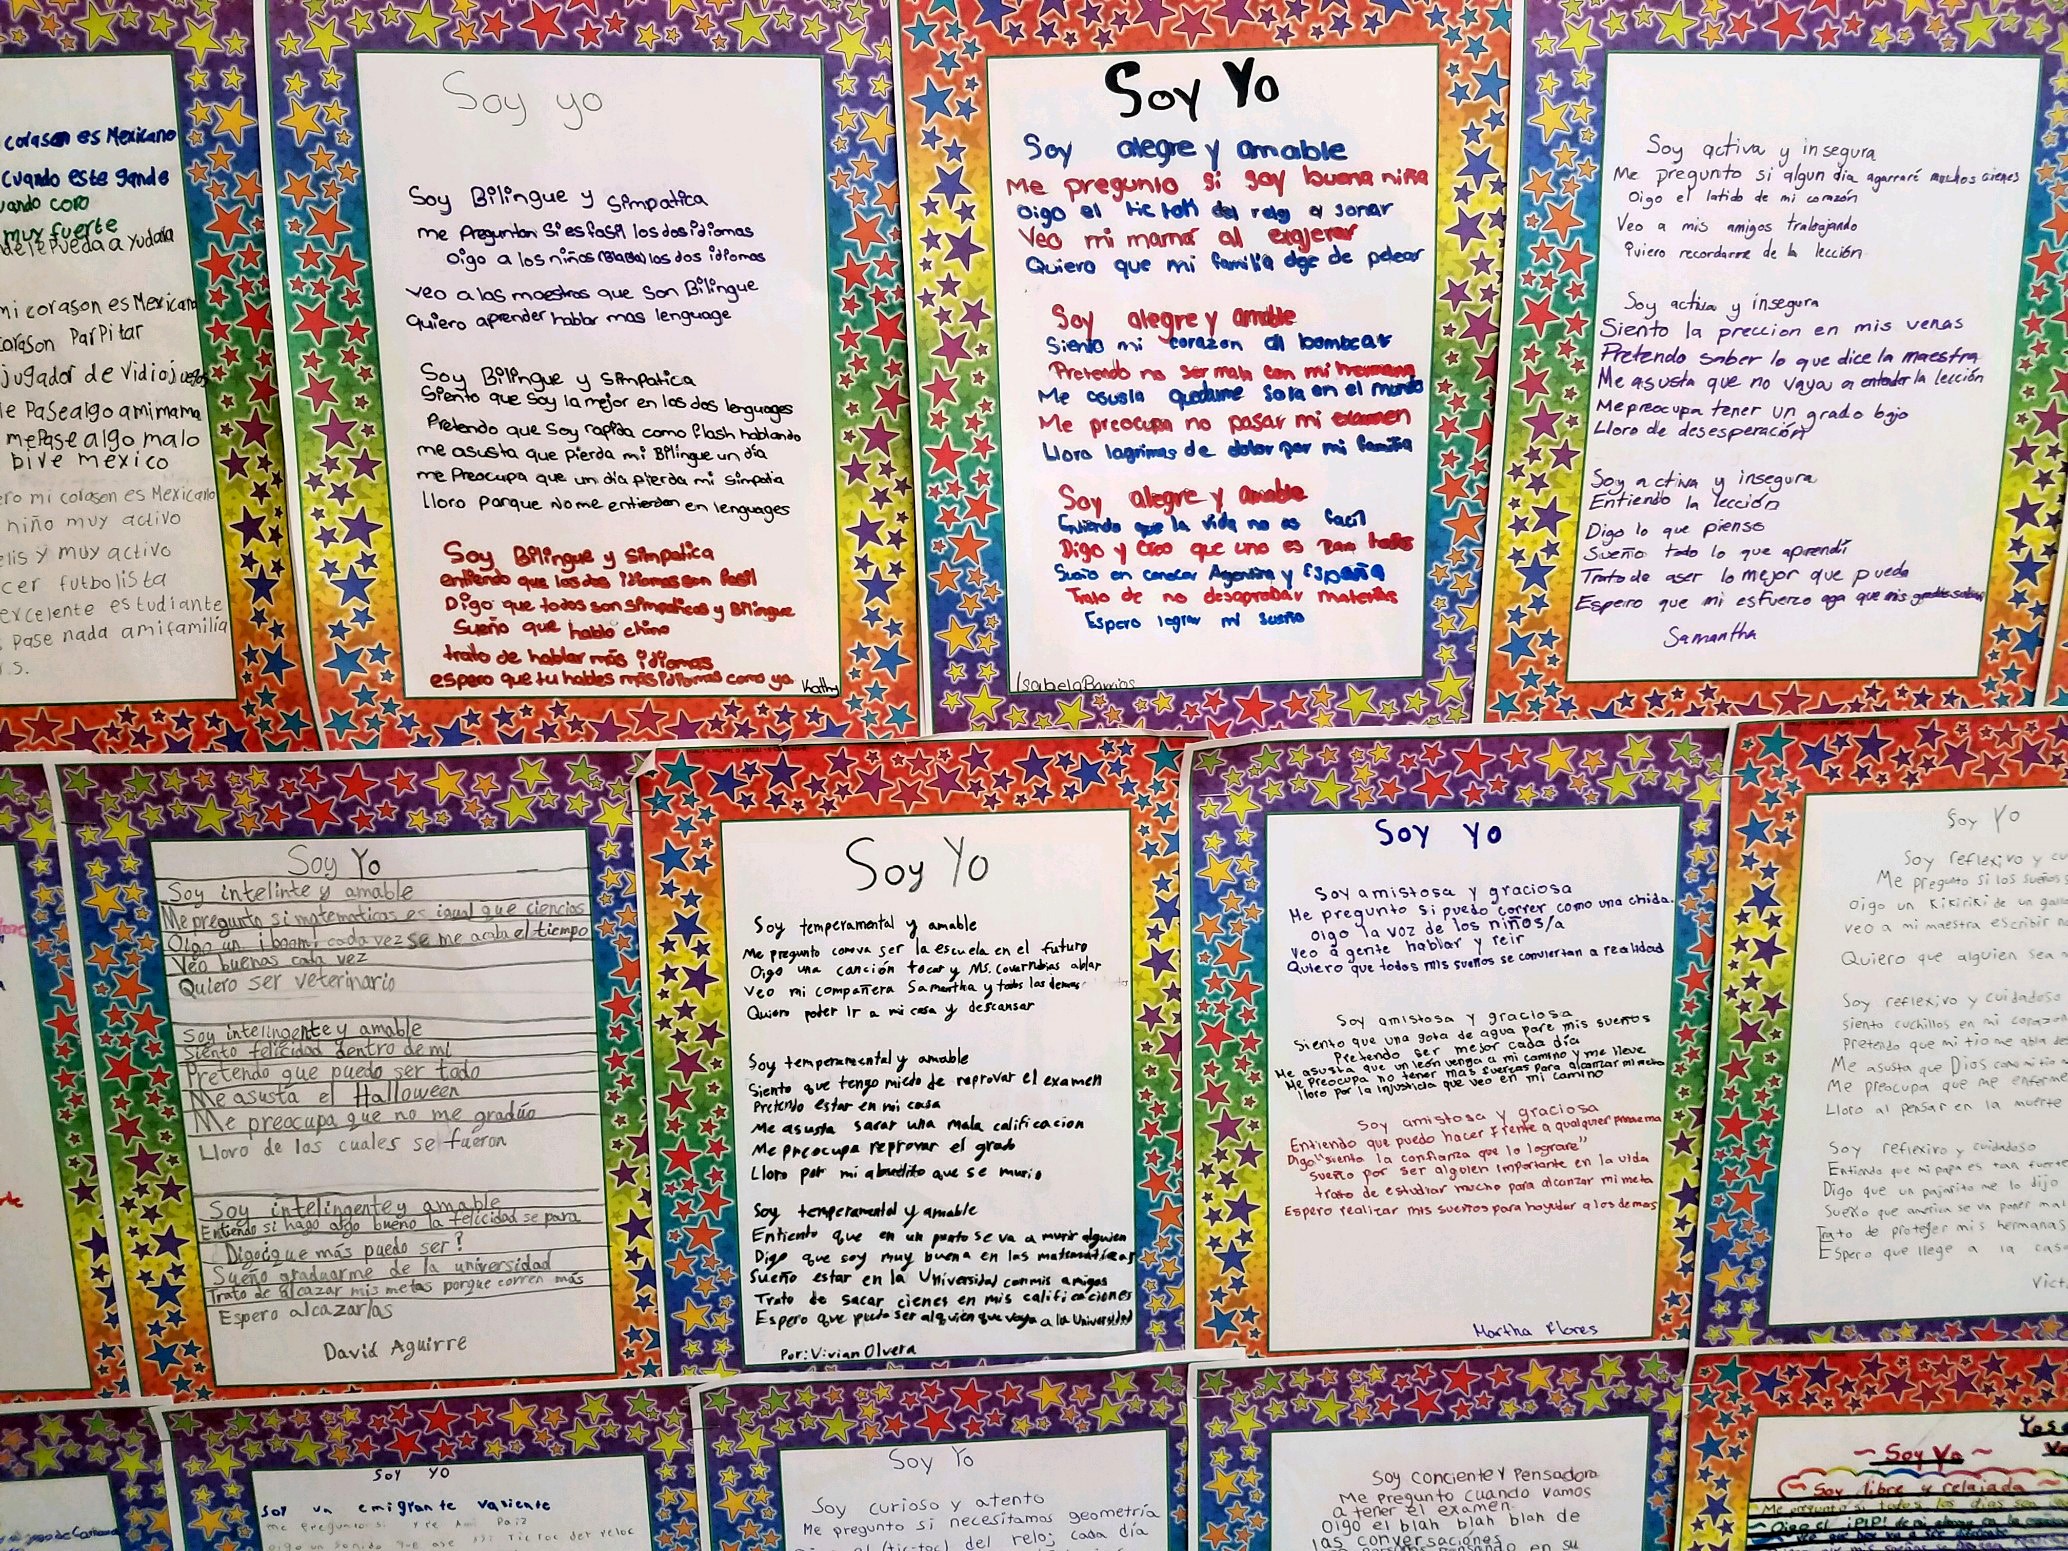 corason es Mexicano
cuando este gande
cuando coro
muy fuerte
mi corason es Mexicano
corason ParPitar
jugador de Vidiojuegos
Pase algo amimama
me Pase algo malo
bive mexico
mi corason es Mexicano
niño muy activo
y muy activo
futbolista
excelente estudiante
Pase nada amifamilia
Soy yo
Soy Bilingue y simpatica
me Preguntan Si es fasil los dos idiomas
oigo a los niños (Blabla) los dos idiomas
veo a las maestras que son Bilingue
Quiero aprender hablar mas lenguage
Soy Bilingue y simpatica
Siento que soy la mejor en los dos lenguages
Pretendo que soy rapida como flash hablando
me asusta que pierda mi Bilingue un día
me Preocupa que un día pierda mi simpatia
lloro porque no me entienden en lenguages
Soy Bilingue y simpatica
entiendo que los dos idiomas son fasil
Digo que todos son simpaticos y Bilingue
Sueño que hablo chino
trato de hablar más idiomas
espero que tu hables más idiomas como yo
Kathy
Soy Yo
Soy alegre y amable
Me pregunto si soy buena niña
Oigo el tic tok del reloj a sonar
Veo mi mamá al exajerar
Quiero que mi familia deje de pelear
Soy alegre y amable
Siento mi corazon al bombear
Pretendo no ser mala con mi hermana
Me asusta quedarme sola en el mundo
Me preocupa no pasar mi examen
Lloro lagrimas de dolor por mi familia
Soy alegre y amable
Entiendo que la vida no es facil
Digo y Creo que uno es para todos
Sueño en conocer Argentina y España
Trato de no desaprobar materias
Espero lograr mi sueño
Isabela Barrios
Soy activa y insegura
Me pregunto si algun día agarraré muchos cienes
Oigo el latido de mi corazón
Veo a mis amigos trabajando
Quiero recordarme de la lección
Soy activa y insegura
Siento la preccion en mis venas
Pretendo saber lo que dice la maestra
Me asusta que no vaya a entender la lección
Me preocupa tener un grado bajo
Lloro de desesperación
Soy activa y insegura
Entiendo la lección
Digo lo que pienso
Sueño todo lo que aprendí
Trato de aser lo mejor que pueda
Espero que mi esfuerzo aga que mis grados suban
Samantha
Soy Yo
Soy intelinte y amable
Me pregunto si matematicas es igual que ciencias
Oigo un ¡boom! cada vez se me acaba el tiempo
Veo buenas cada vez
Quiero ser veterinario
Soy intelingente y amable
Siento felicidad dentro de mi
Pretendo que puedo ser todo
Me asusta el Halloween
Me preocupa que no me gradúo
Lloro de los cuales se fueron
Soy intelingente y amable
Entiendo si hago algo bueno la felicidad se para
Digo ¿que más puedo ser?
Sueño graduarme de la universidad
Trato de alcazar mis metas porque corren más
Espero alcazarlas
David Aguirre
Soy Yo
Soy temperamental y amable
Me pregunto comova ser la escuela en el futuro
Oigo una canción tocar y Ms. Covarrubias ablar
Veo mi compañera Samantha y todos los demas
Quiero poder ir a mi casa y descansar
Soy temperamental y amable
Siento que tengo miedo de reprovar el examen
Pretendo estar en mi casa
Me asusta sarar una mala calificacion
Me preocupa reprovar el grado
Lloro por mi abuelito que se murio
Soy temperamental y amable
Entiento que en un punto se va a murir alguien
Digo que soy muy buena en las matematicas
Sueño estar en la Universidad con mis amigos
Trato de sacar cienes en mis calificaciones
Espero que pueda ser alquien que vaya a la Universidad
Por: Vivian Olvera
Soy Yo
Soy amistosa y graciosa
Me pregunto si puedo correr como una chida.
Oigo la voz de los niños/a
Veo a gente hablar y reir
Quiero que todos mis sueños se conviertan a realidad
Soy amistosa y graciosa
Siento que una gota de agua pare mis sueños
Pretendo ser mejor cada día
Me asusta que un león venga a mi camino y me lleve
Me preocupa no tener mas fuerzas para alcanzar mi meta
lloro por la injusticia que veo en mi camino
Soy amistosa y graciosa
Entiendo que puedo hacer frente a qualquier problema
Digo "siento la confianza que lo lograre"
Sueño por ser alguien importante en la vida
trato de estudiar mucho para alcanzar mi meta
Espero realizar mis sueños para hayudar a los demas
Martha Flores
Soy Yo
Soy reflexivo y
Me pregunto si los sueños
Oigo un Kikiriki de un
veo a mi maestra escribir
Quiero que alguien sea
Soy reflexivo y cuidadoso
siento cuchillos en mi corazon
Pretendo que mi tio me abla
Me asusta que Dios
Me preocupa que me enferme
Lloro al pensar en la muerte
Soy reflexivo y cuidadoso
Entiendo que mi papa es tan fuerte
Digo que un pajarito me lo dijo
Sueño que america se va poner
Trato de proteger mis hermanas
Espero que llege a la casa
Soy Yo
Soy un emigrante valiente
Me pregunto si
Soy Yo
Soy curioso y atento
Me pregunto si necesitamos geometría
(tic-toc) del reloj cada día
Soy conciente y Pensadora
Me pregunto cuando vamos
a tener el examen.
Oigo el blah blah blah de
las conversaciónes
~ Soy Yo ~
Soy libre y relajada
Me pregunto si todos los días son
Oigo el ¡PIP! de mi